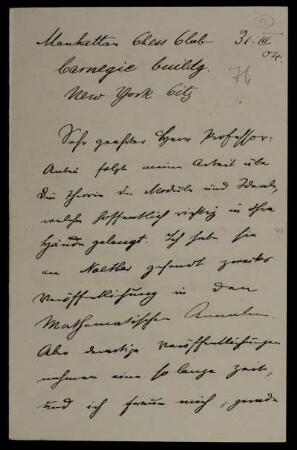 Manhattan Chess Club 31. III 04.
Carnegie buildg. 76
New York City
Sehr geehrter Herr Professor.
Anbei folgt meine Arbeit über
die Theorie der Moduln und Ideale,
welche hoffentlich richtig in Ihre
Hände gelangt. Ich habe sie
an Noether gesandt zwecks
Veröffentlichung in den
Mathematischen Annalen.
Aber derartige Veröffentlichungen
nehmen eine so lange Zeit,
und ich freue mich, gerade